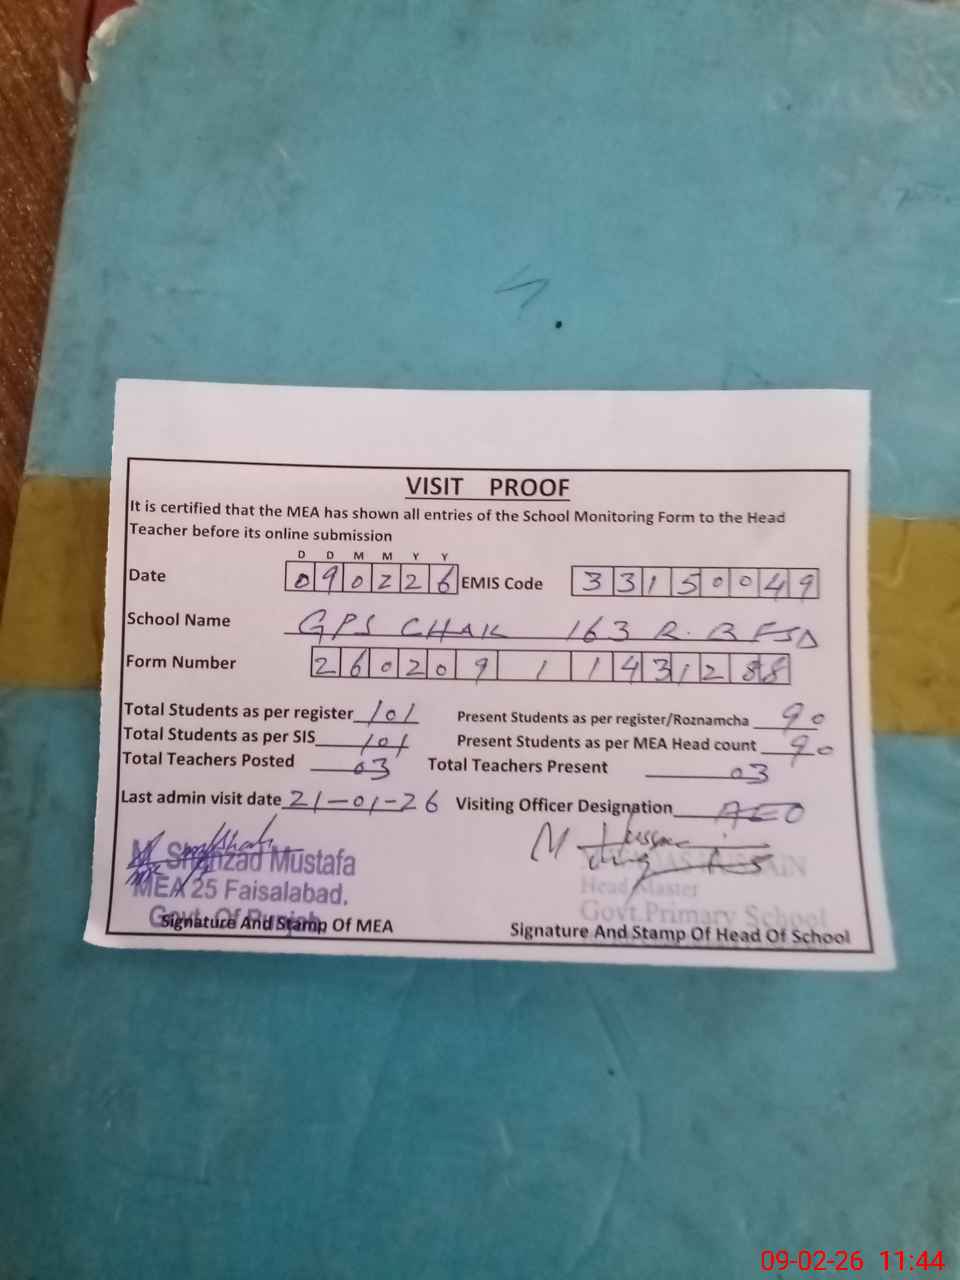 VISIT PROOF
It is certified that the MEA has shown all entries of the School Monitoring Form to the Head
Teacher before its online submission
D D M M Y Y
Date 090226 EMIS Code 33150049
School Name GPS CHAK 163 R.B FSD
Form Number 260209 1 1431288
Total Students as per register 101 Present Students as per register/Roznamcha 90
Total Students as per SIS 101 Present Students as per MEA Head count 90
Total Teachers Posted 03 Total Teachers Present 03
Last admin visit date 21-01-26 Visiting Officer Designation AEO
M Shahzad Mustafa
MEA 25 Faisalabad. Head Master
Govt. Of Punjab Govt. Primary School
Signature And Stamp Of MEA Signature And Stamp Of Head Of School
09-02-26 11:44